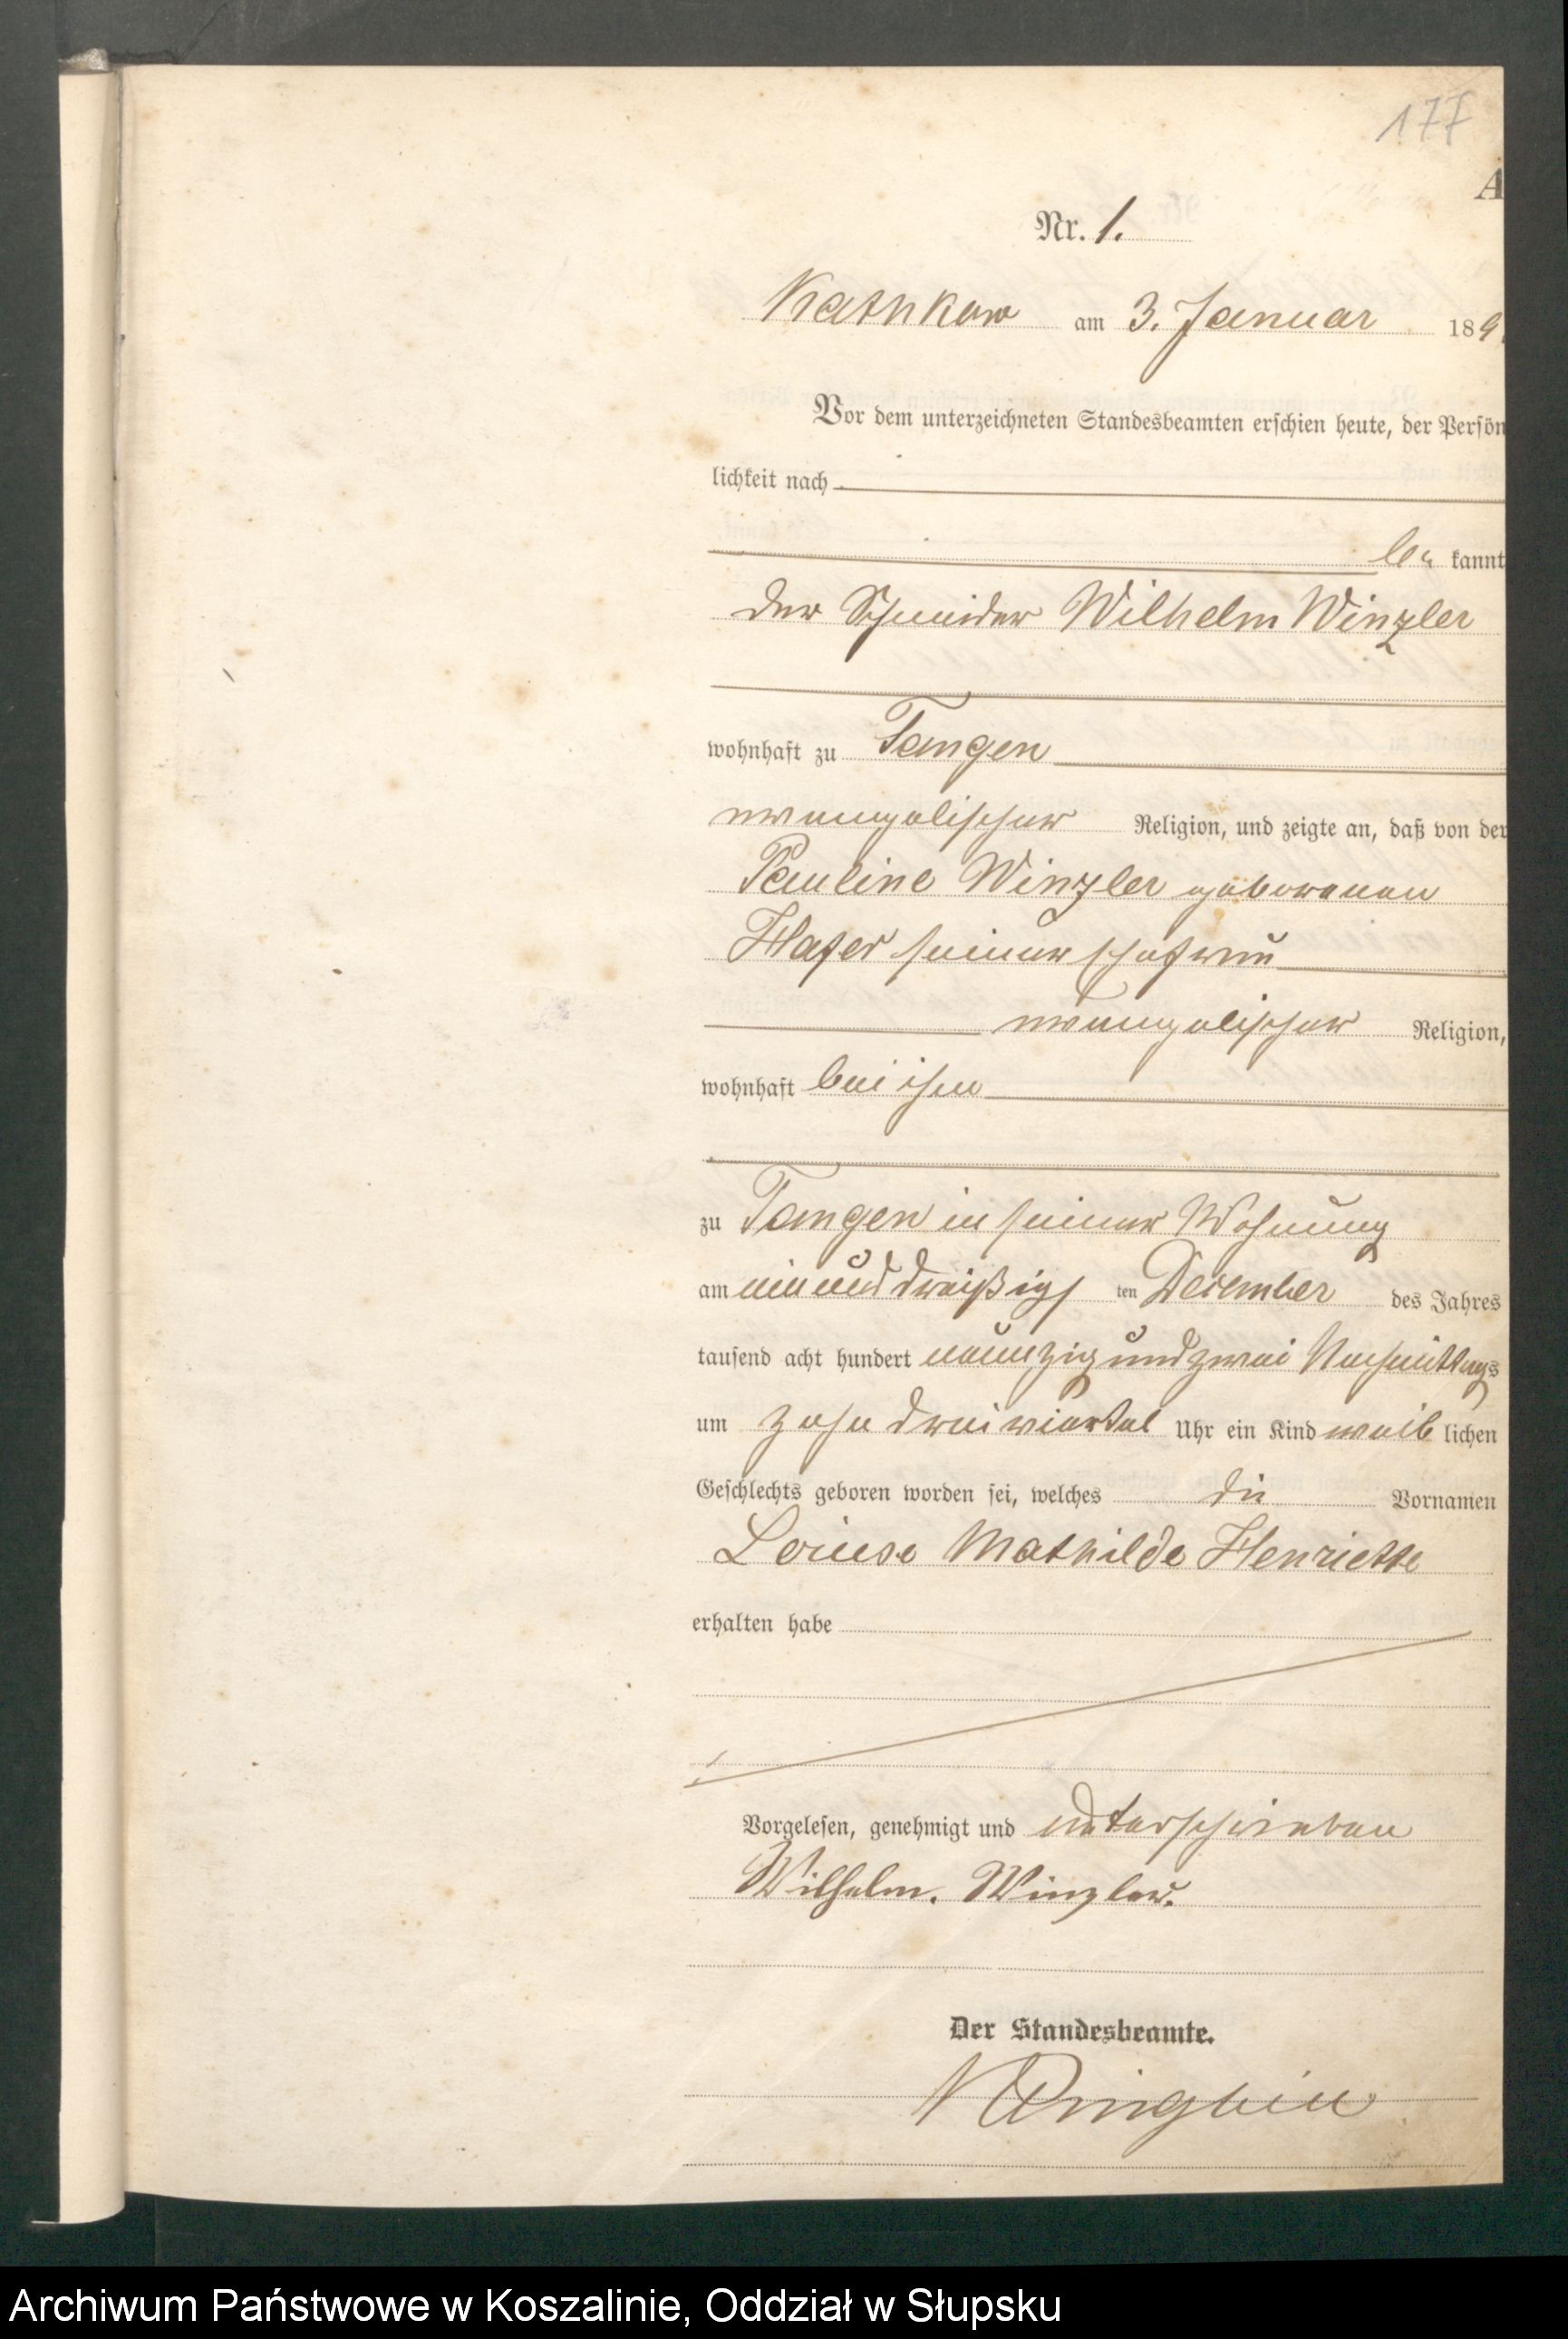 177
A
Nr. 1.
Kathkow am 3. Januar 189
Vor dem unterzeichneten Standesbeamten erschien heute, der Persön
lichkeit nach
be kannt
der Schneider Wilhelm Winzler
wohnhaft zu Tangen
evangelischer Religion, und zeigte an, daß von der
Pauline Winzler geborenen
Hafer seiner Ehefrau
evangelischer Religion,
wohnhaft bei ihm
zu Tangen in seiner Wohnung
am einunddreißigs ten December des Jahres
tausend acht hundert neunzig und zwei Nachmittags
um zehn dreiviertel Uhr ein Kind weib lichen
Geschlechts geboren worden sei, welches die Vornamen
Louise Mathilde Henriette
erhalten habe
Vorgelesen, genehmigt und unterschrieben
Wilhelm. Winzler.
Der Standesbeamte.
Archiwum Państwowe w Koszalinie, Oddział w Słupsku